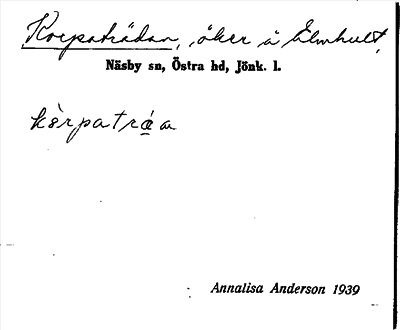 Korpaträdan, åker å Älmhult,
Näsby sn, Östra hd, Jönk. l.
kòrpatrá̤a
Annalisa Anderson 1939